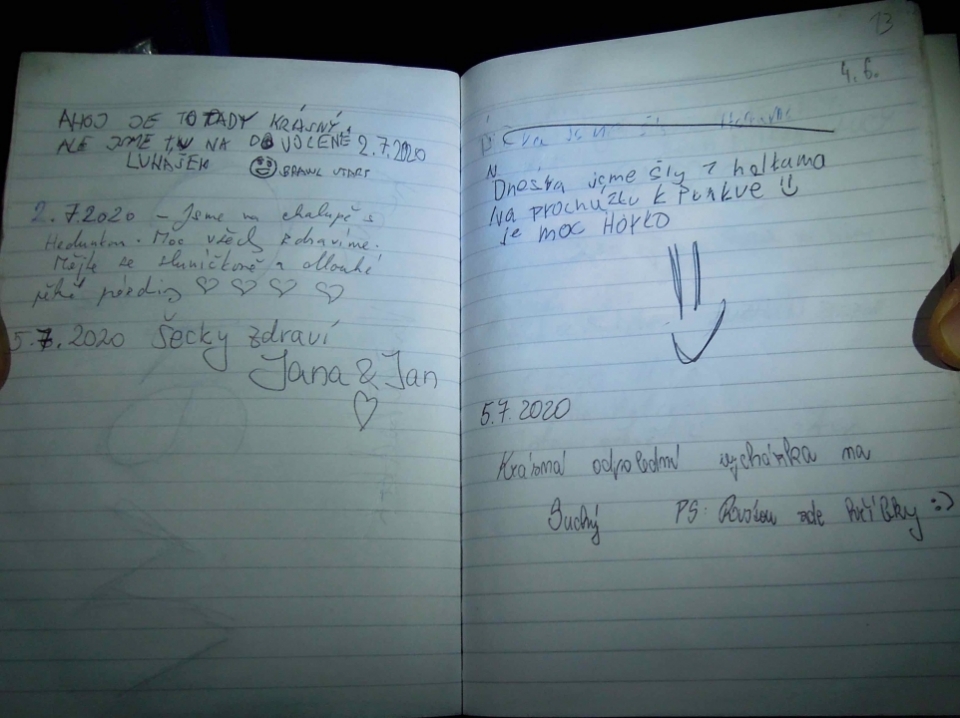 AHOJ JE TO TADY KRÁSNÝ
ALE JSME TU NA DOVOLENÉ 2.7.2020
LUKÁŠEK BRAWL START
2.7.2020 - Jsme na chalupě s
Moc všech zdravíme.
Mějte se sluníčkově a dlouhé
pěkné prázdniny ♡ ♡ ♡ ♡
5.7.2020 Šecky zdraví
Jana & Jan
♡
13
4.6.
Dneska jsme šly z holkama
Na procházku k Punkvě
je moc Horko
5.7.2020
Krásná odpolední vycházka na
Suchý PS: Rostou zde hříbky :)